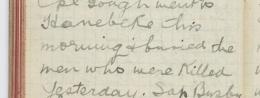 Cpl Gough went to
Hanebeke this
morning & buried the
men who were killed
yesterday. Sap Busby